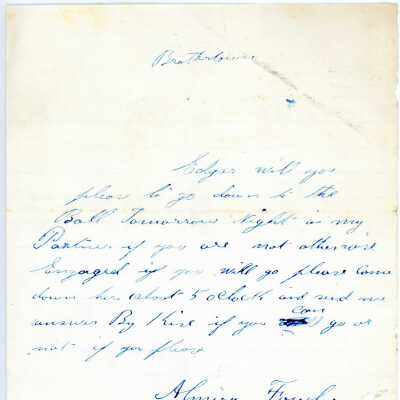 Brothertown
Edgar will you
please to go down to the
Ball Tomorrow Night as my
Partner if you are not otherwise
Engaged if you will go please come
down here about 5 oclock and send me
can
answer By if you go or
not if you please
Almira